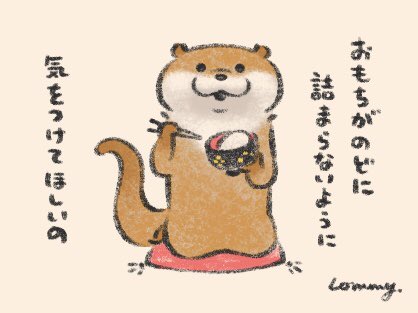 おもちがのどに
詰まらないように
気をつけてほしいの
Lommy.